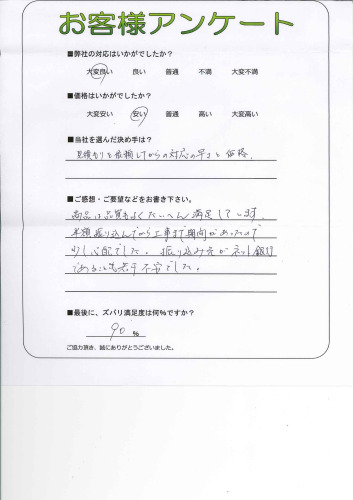 お客様アンケート
■弊社の対応はいかがでしたか？
大変良い 良い 普通 不満 大変不満
■価格はいかがでしたか？
大変安い 安い 普通 高い 大変高い
■当社を選んだ決め手は？
見積もりを依頼してからの対応の早さと価格。
■ご感想・ご要望などをお書き下さい。
商品は品質もよくたいへん満足しています。
半額振り込んでから工事まで期間があったので
少し心配でした。振り込み先がネット銀行
であることも若干不安でした。
■最後に、ズバリ満足度は何％ですか？
90 ％
ご協力頂き、誠にありがとうございました。